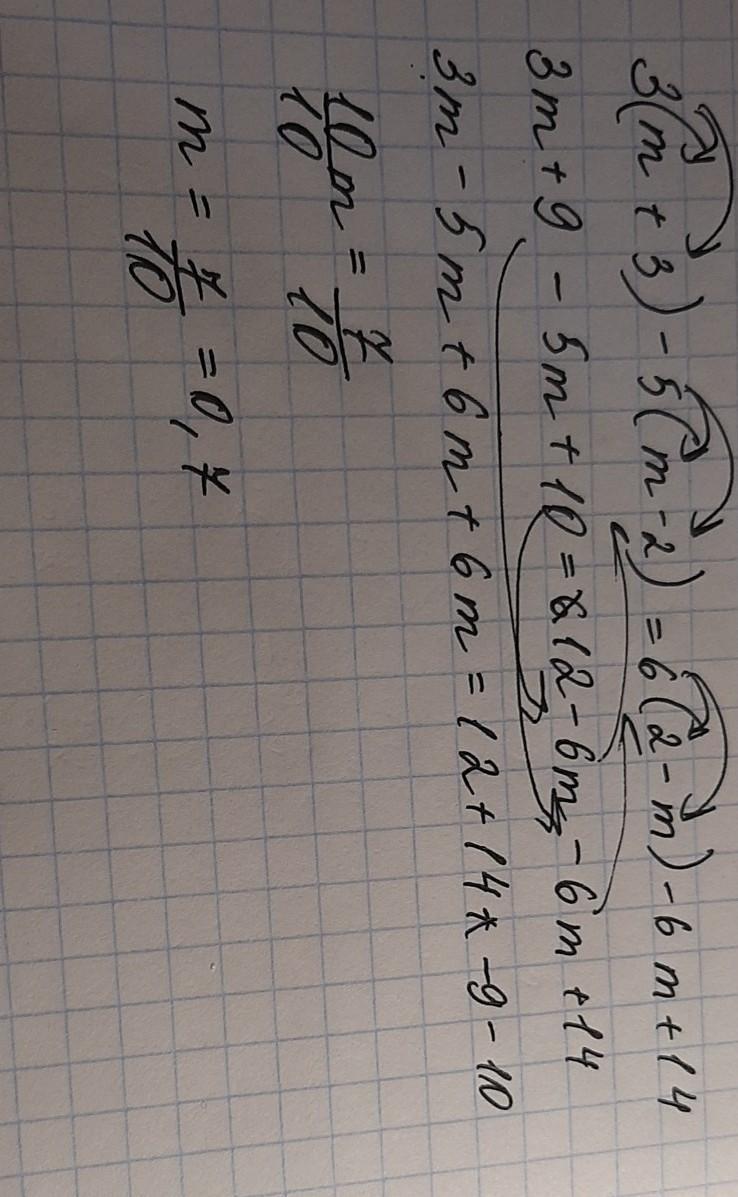 3(m + 3) - 5(m - 2) = 6(2 - m) - 6m + 14
3m + 9 - 5m + 10 = 12 - 6m - 6m + 14
3m - 5m + 6m + 6m = 12 + 14 - 9 - 10
10m/10 = 7/10
m = 7/10 = 0,7